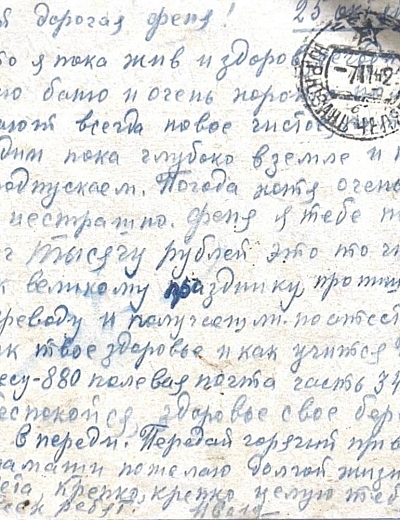 дорогая феня! 25 окт
о я пока жив и здоров
ю баню и очень хоро
ают всегда новое чистое
дим пока глубоко в земле и н
одпускаем. Погода хотя очень
и нестрашно. феня я тебе п
тысячу рублей это то чт
к великому празднику пропиш
ереводу и получаеш ли поатест
ак твое здоровье и как учится
есу-880 полевая почта часть 34
еспокойся, здоровье свое бер
в переди. Передай горячий при
мамаши пожелаю долгой жизн
Крепко, крепко целую теб
ребят.
-7 11 42